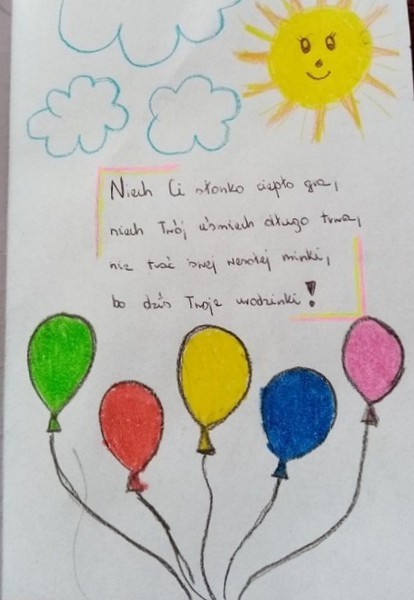 Niech Ci słonko ciepło gra,
niech Twój uśmiech długo trwa,
nie trać swej wesołej minki,
bo dziś Twoje urodzinki!